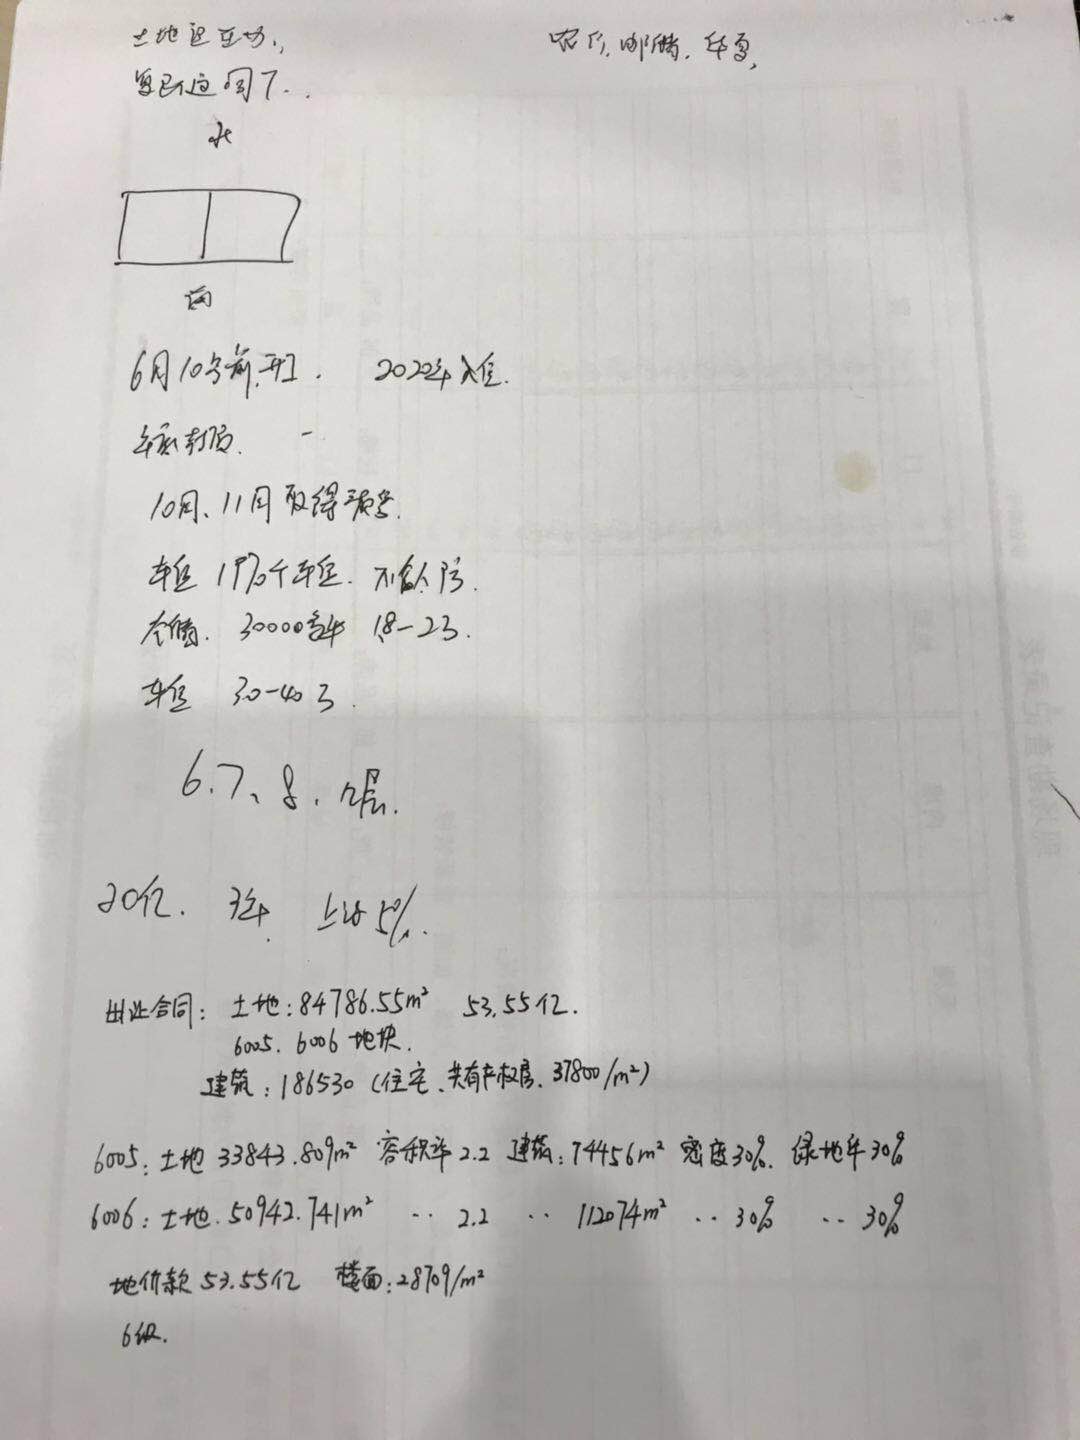 土地
北
南
6月10号前开工. 2022年入住.
年底封顶.
10月、11月取得预售.
车位 1970个车位. 不含人防.
仓储. 30000多平 1.8-23.
车位 30-40万.
6.7、8、 层.
20亿. 3年. 5%.
出让合同: 土地:84786.55m² 53.55亿.
6005. 6006 地块.
建筑:186530 (住宅、共有产权房、37800/m²)
6005: 土地 33843.809m² 容积率2.2 建筑:74456m² 密度30%. 绿地率30%
6006: 土地.50942.741m² ·· 2.2 ·· 112074m² ·· 30% ·· 30%
地价款 53.55亿 楼面:28709/m²
6级.